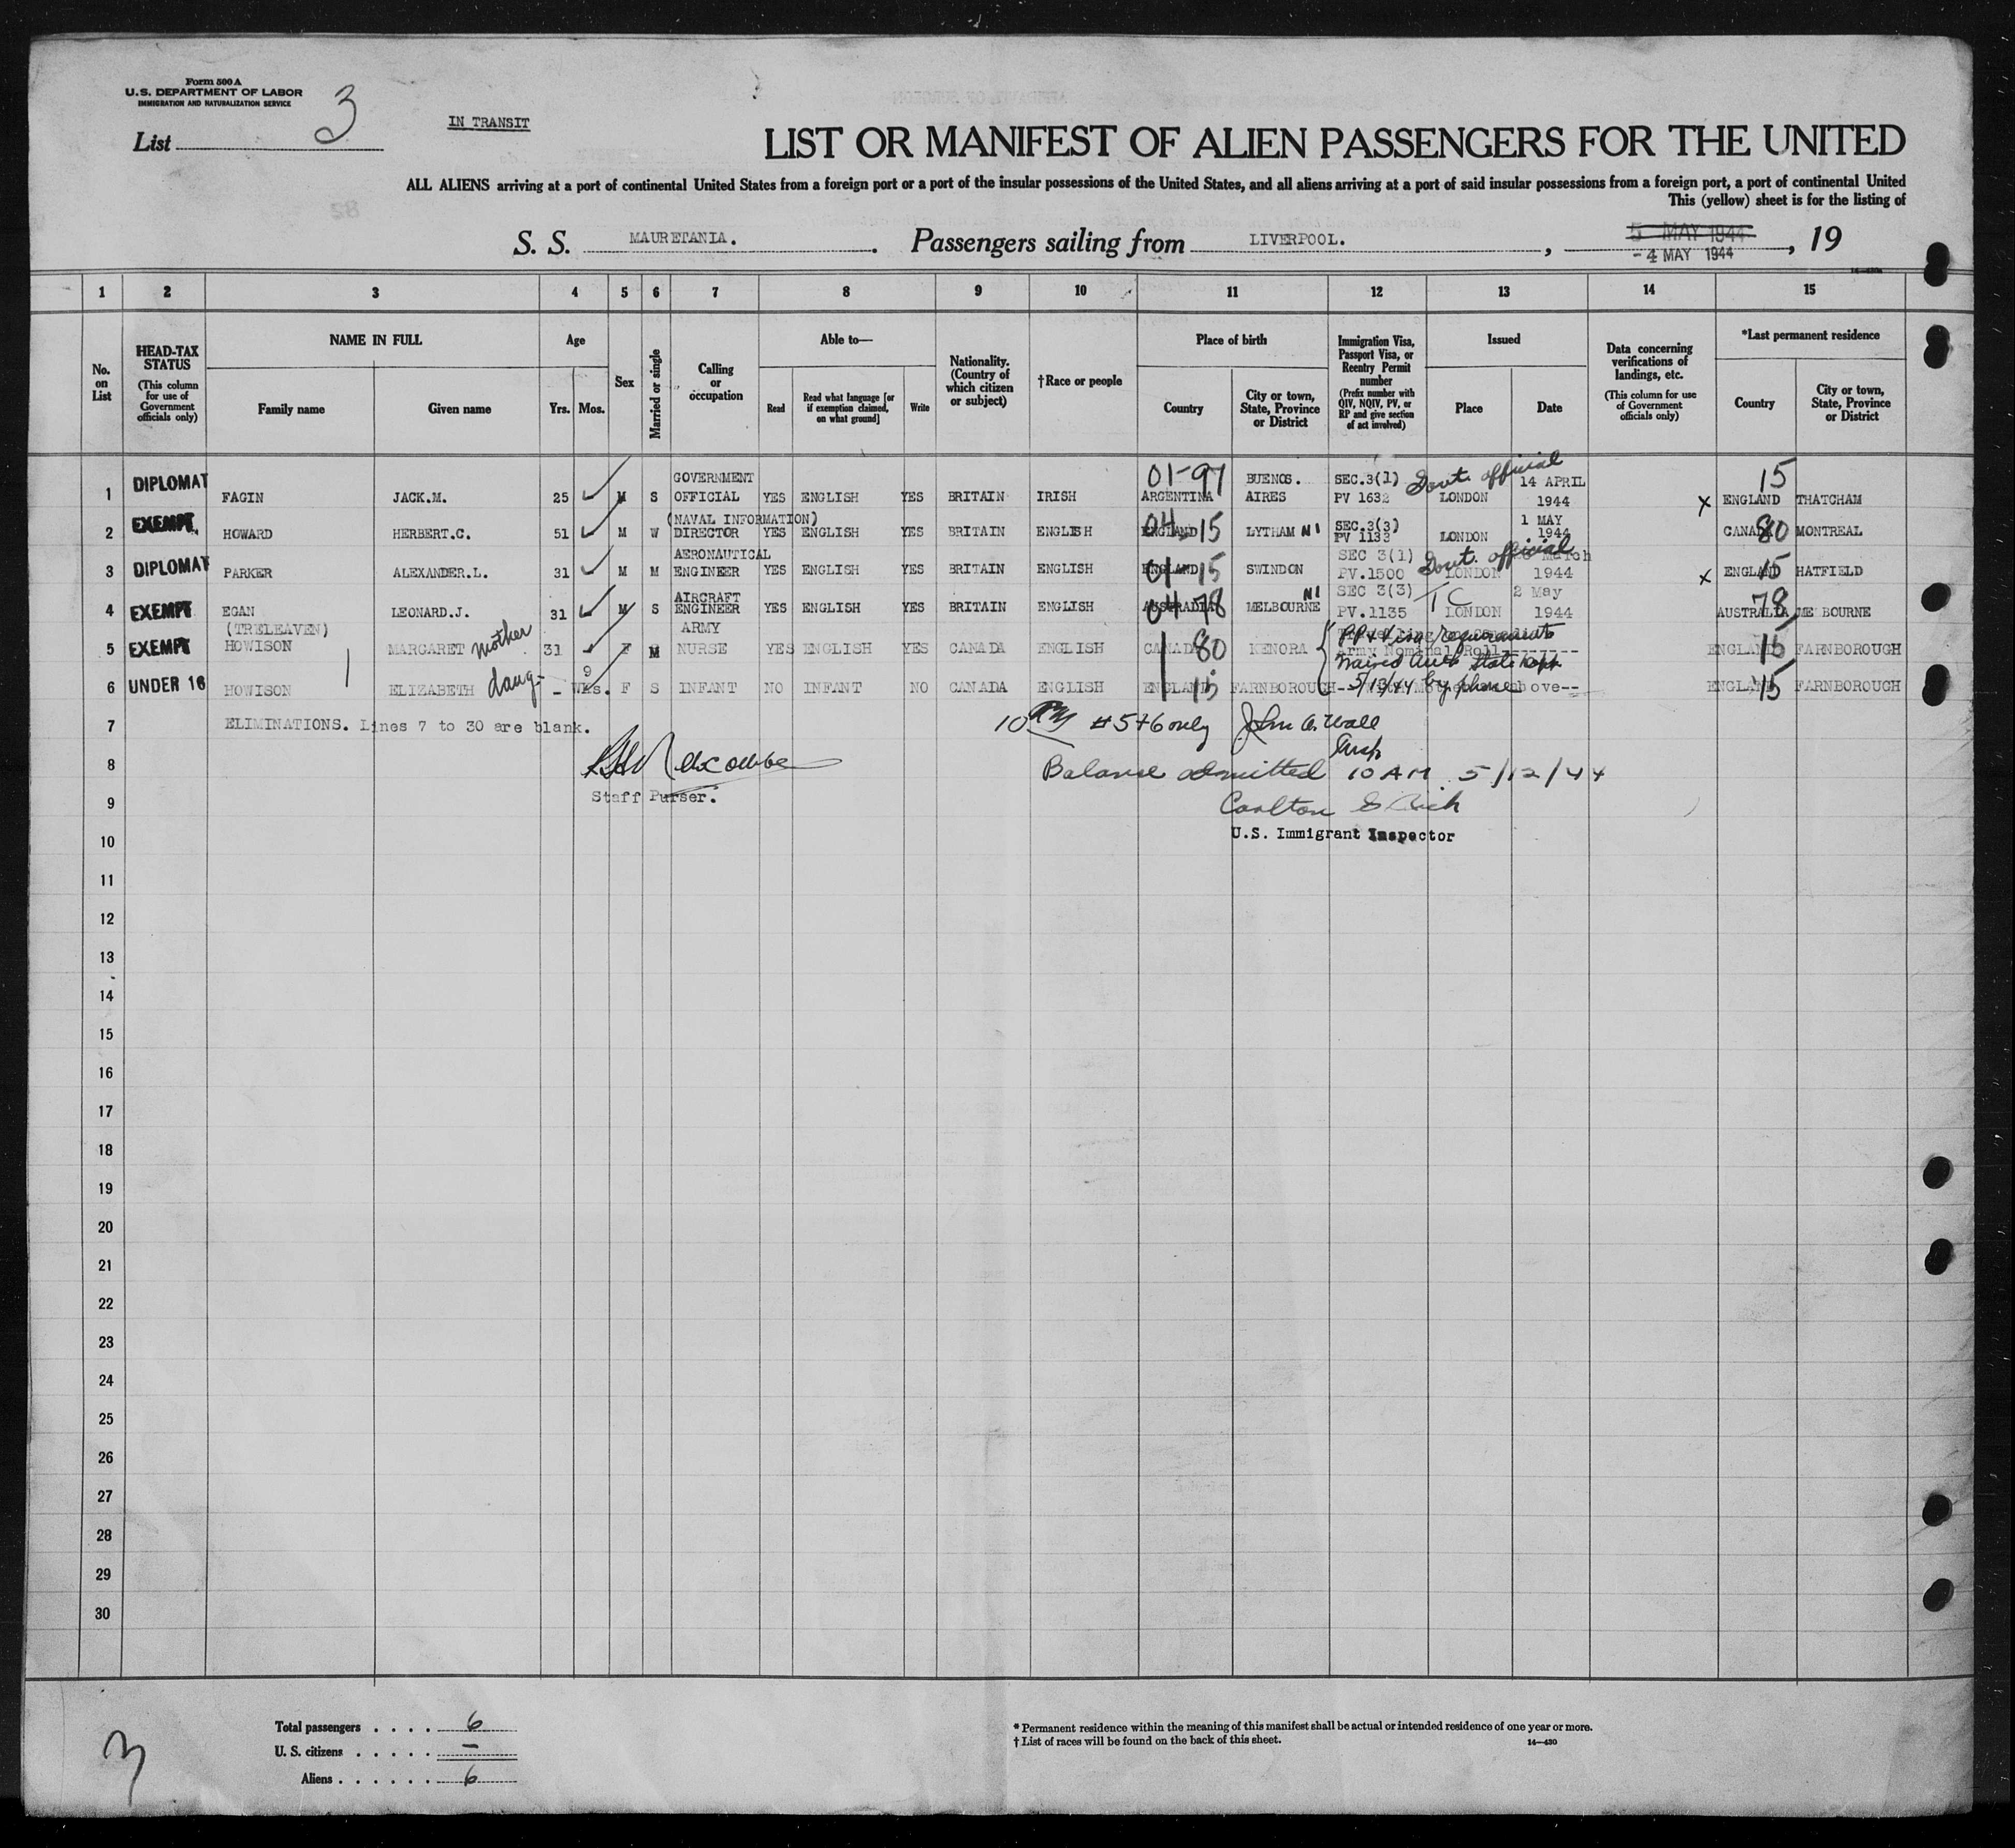 Form 500 A
U.S. DEPARTMENT OF LABOR
IMMIGRATION AND NATURALIZATION SERVICE
List 3
IN TRANSIT
LIST OR MANIFEST OF ALIEN PASSENGERS FOR THE UNITED
ALL ALIENS arriving at a port of continental United States from a foreign port or a port of the insular possessions of the United States, and all aliens arriving at a port of said insular possessions from a foreign port, a port of continental United
This (yellow) sheet is for the listing of
S. S. MAURETANIA. Passengers sailing from LIVERPOOL. , 5 MAY 1944 , 19
- 4 MAY 1944
1 2 3 4 5 6 7 8 9 10 11 12 13 14 15
No. on List
HEAD-TAX STATUS (This column for use of Government officials only)
NAME IN FULL
Family name Given name
Age
Yrs. Mos.
Sex
Married or single
Calling or occupation
Able to—
Read Read what language [or if exemption claimed, on what ground] Write
Nationality. (Country of which citizen or subject)
†Race or people
Place of birth
Country City or town, State, Province or District
Immigration Visa, Passport Visa, or Reentry Permit number (Prefix number with QIV, NQIV, PV, or RP and give section of act involved)
Issued
Place Date
Data concerning verifications of landings, etc. (This column for use of Government officials only)
*Last permanent residence
Country City or town, State, Province or District
GOVERNMENT 01-97 BUENOS. SEC.3(1) Govt. official 14 APRIL 15
1 DIPLOMAT FAGIN JACK.M. 25 M S OFFICIAL YES ENGLISH YES BRITAIN IRISH ARGENTINA AIRES PV 1632 LONDON 1944 x ENGLAND THATCHAM
(NAVAL INFORMATION) SEC.3(3) 1 MAY
2 EXEMPT HOWARD HERBERT.C. 51 M W DIRECTOR YES ENGLISH YES BRITAIN ENGLISH ENGLAND 04 15 LYTHAM NI PV 1133 LONDON 1944 CANADA 80 MONTREAL
AERONAUTICAL SEC 3(1) Govt. official March
3 DIPLOMAT PARKER ALEXANDER.L. 31 M M ENGINEER YES ENGLISH YES BRITAIN ENGLISH ENGLAND 01 15 SWINDON PV.1500 LONDON 1944 x ENGLAND 15 HATFIELD
AIRCRAFT NI SEC 3(3) TC 2 May
4 EXEMPT EGAN LEONARD.J. 31 M S ENGINEER YES ENGLISH YES BRITAIN ENGLISH AUSTRALIA 04 78 MELBOURNE PV.1135 LONDON 1944 AUSTRALIA 78 MELBOURNE
(TRELEAVEN) ARMY PP + Visa requirements
5 EXEMPT HOWISON MARGARET mother 31 F M NURSE YES ENGLISH YES CANADA ENGLISH CANADA 1 80 KENORA Army Nominal Roll ENGLAND 15 FARNBOROUGH
waived Auth State Dept
9
6 UNDER 16 HOWISON ELIZABETH daug. - Wks. F S INFANT NO INFANT NO CANADA ENGLISH ENGLAND 1 15 FARNBOROUGH 5/13/44 by phone above-- ENGLAND 15 FARNBOROUGH
7 ELIMINATIONS. Lines 7 to 30 are blank. 10 #5+6 only John A. Wall
Insp
8 Balance admitted 10 AM 5/12/44
9 Staff Purser. Carlton
10 U.S. Immigrant Inspector
11
12
13
14
15
16
17
18
19
20
21
22
23
24
25
26
27
28
29
30
3
Total passengers . . . . 6
U. S. citizens . . . . . –
Aliens . . . . . . 6
* Permanent residence within the meaning of this manifest shall be actual or intended residence of one year or more.
† List of races will be found on the back of this sheet.
14—430